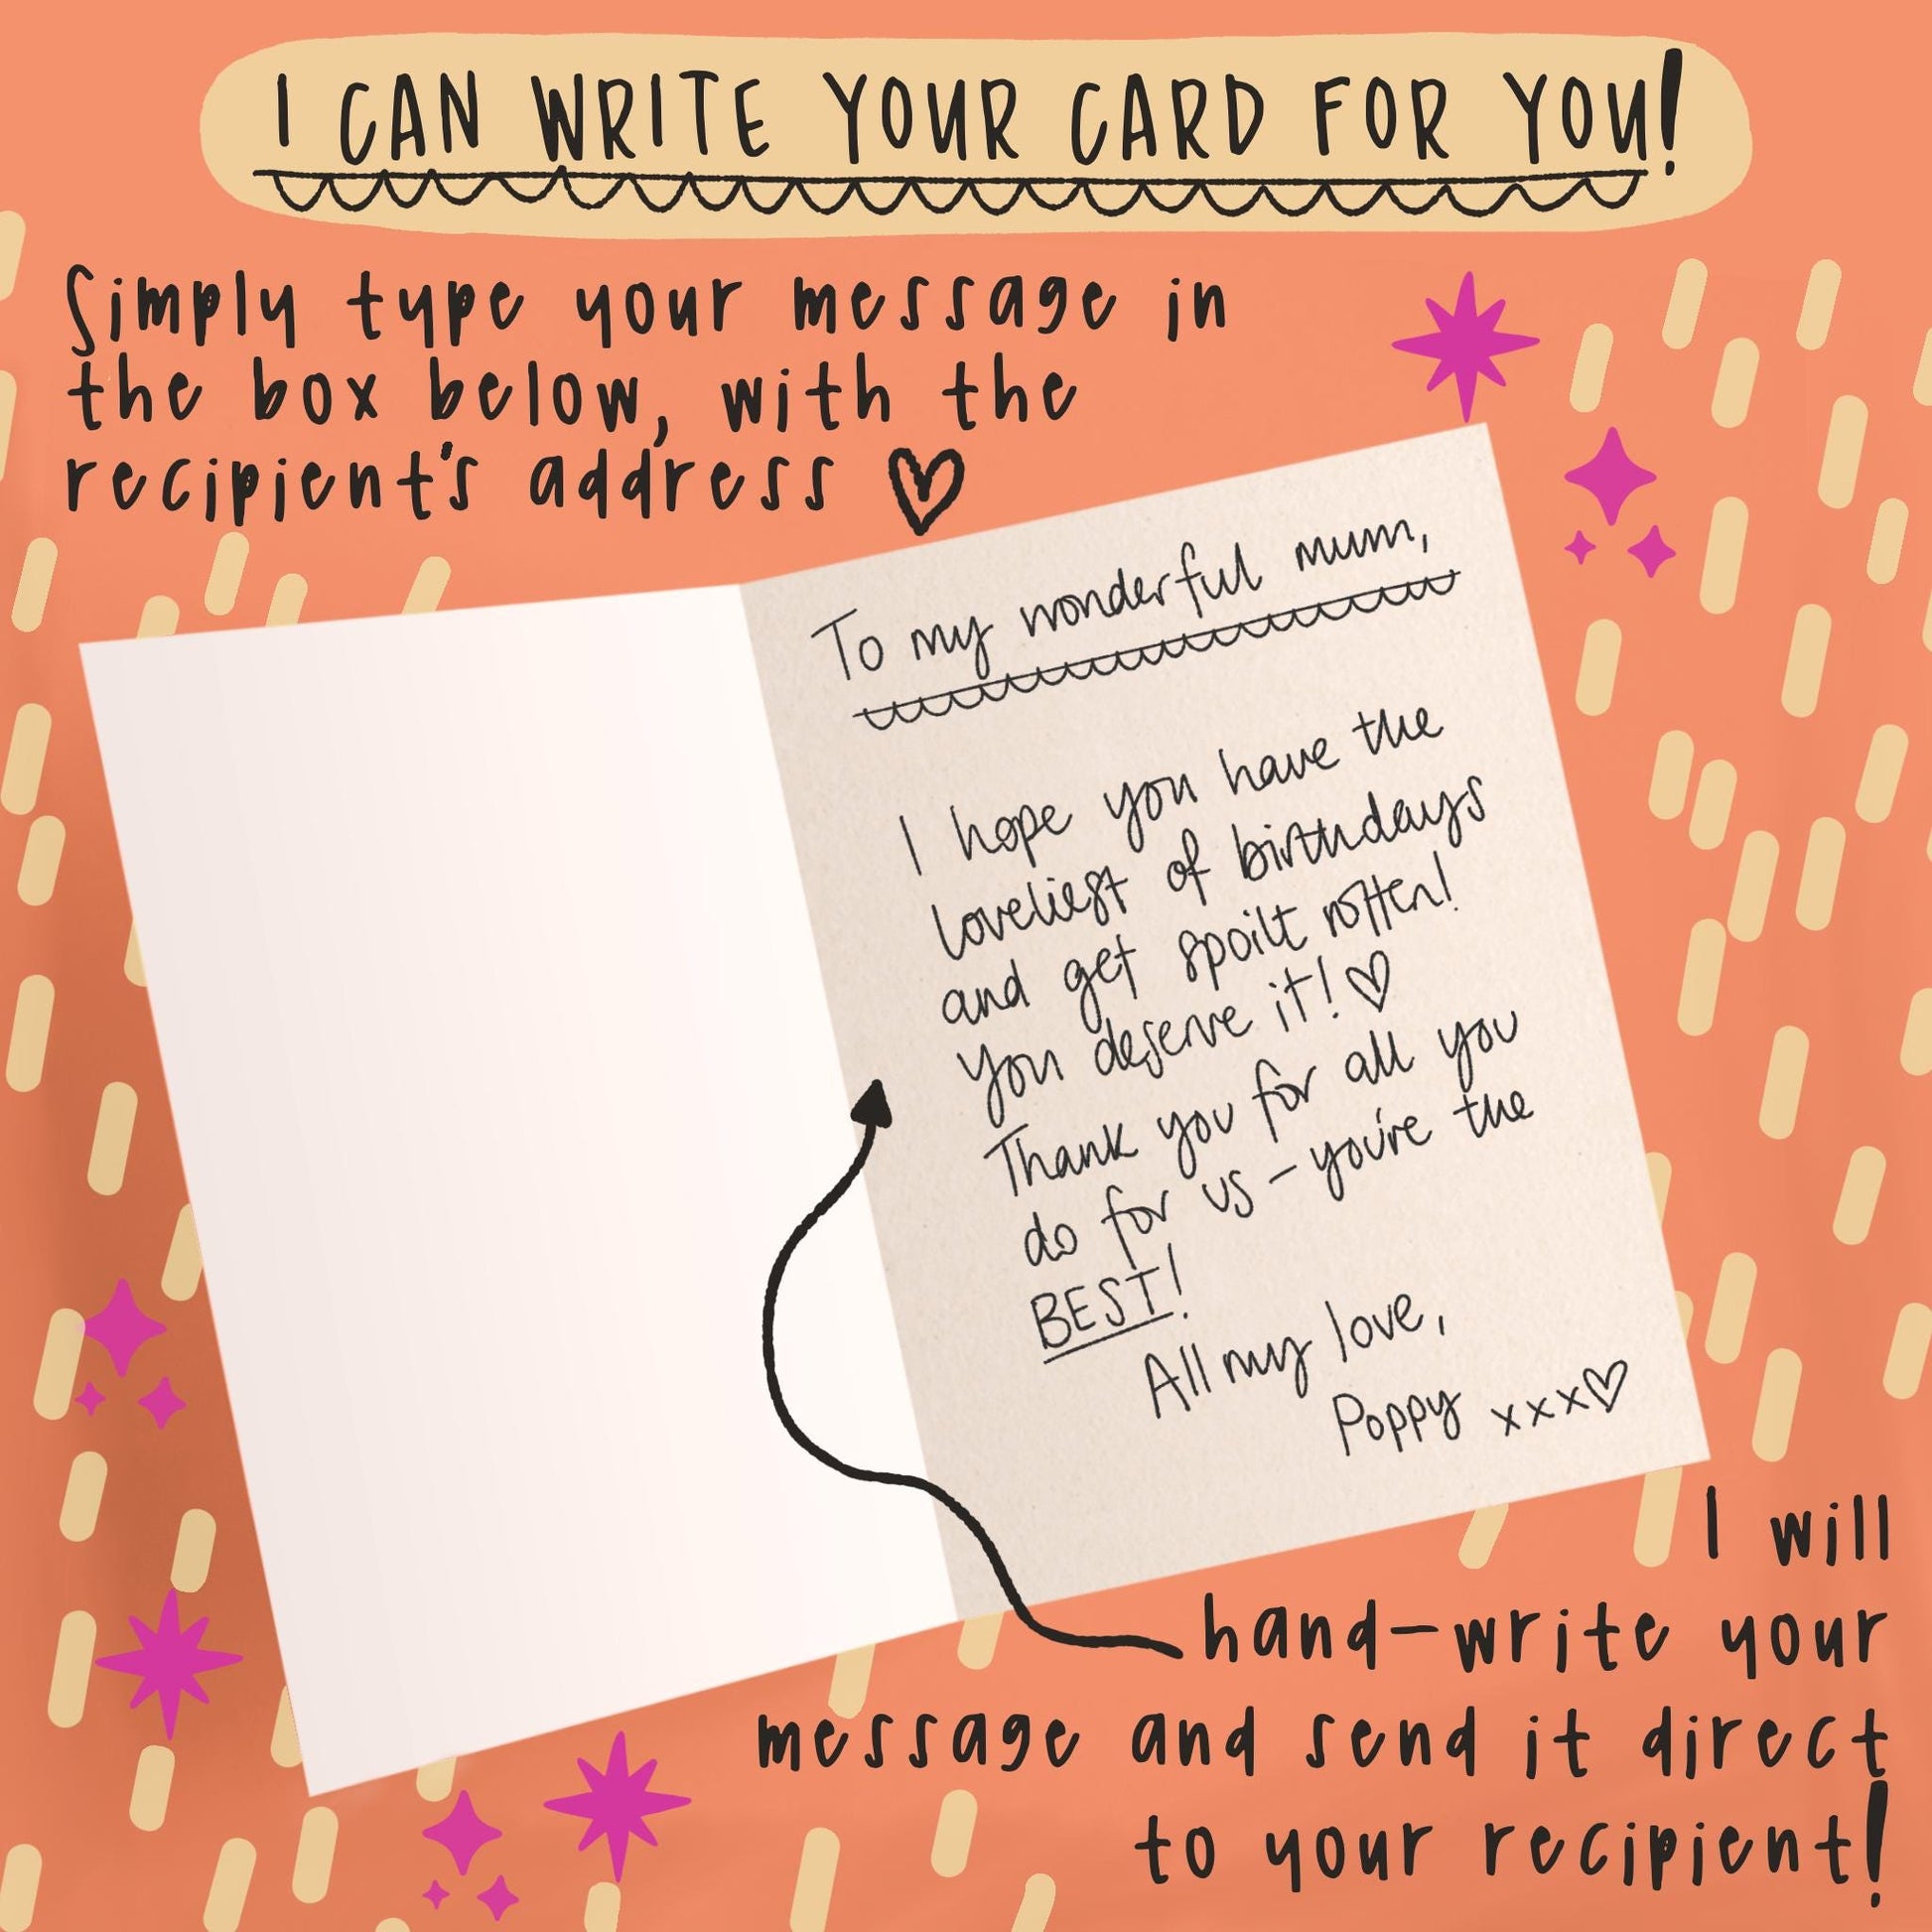 I CAN WRITE YOUR CARD FOR YOU!
Simply type your message in
the box below, with the
recipient's address ♡
To my wonderful mum,
I hope you have the
loveliest of birthdays
and get spoilt rotten!
You deserve it! ♡
Thank you for all you
do for us - you're the
BEST!
All my love,
Poppy xxx♡
I will
hand-write your
message and send it direct
to your recipient!